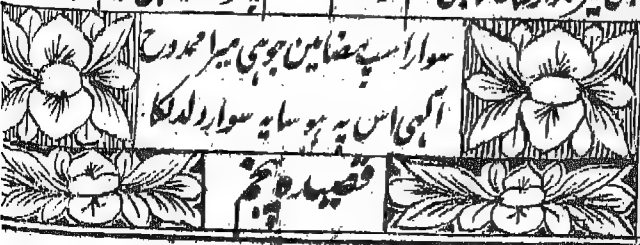 سوار اسپ مضامین جو ہی میرا ممدوح
آلہی اس پہ ہو سایہ سوار دلدل کا
قصیدہ پنجم